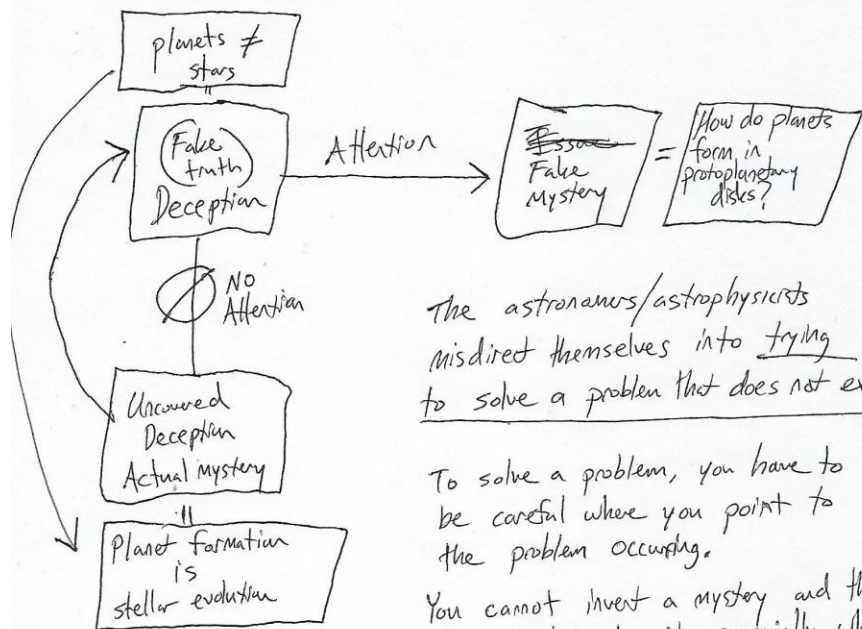 planets ≠
stars
=
Fake
truth
Deception
Attention
Fake
Mystery
=
How do planets
form in
protoplanetary
disks?
NO
Attention
Uncovered
Deception
Actual mystery
=
Planet formation
is
stellar evolution
The astronomers/astrophysicists
misdirect themselves into trying
to solve a problem that does not ex
To solve a problem, you have to
be careful where you point to
the problem occuring.
You cannot invent a mystery and th